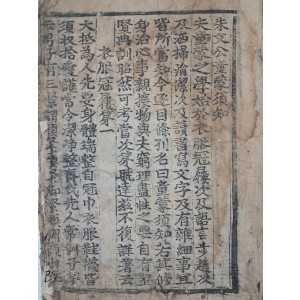 朱文公童蒙須知
夫童蒙之學始於衣服冠履次及語言步趨次
及洒掃涓潔次及讀書寫文字及有雜細事宜
皆所當知今逐目條列名曰童蒙須知若其修
身治心事親接物與夫窮理盡性之要自有聖
賢典訓昭然可考當次第曉達茲不復詳著云
衣服冠履第一
大抵爲人先要身體端整自冠巾衣服鞋襪皆
須收拾愛護常令潔淨整齊我先人常訓子弟
云男子有三緊謂頭緊